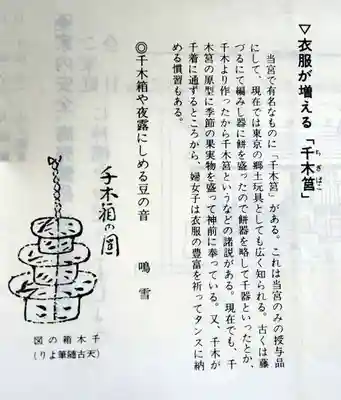 ▽衣服が増える「千木筥」
ちぎばこ
当宮で有名なものに「千木筥」がある。これは当宮のみの授与品
にして、現在では東京の郷土玩具としても広く知られる。古くは藤
づるにて編みし器に餅を盛ったので餅器を略して千器といったとか、
千木より作ったから千木筥というなどの諸説がある。現在でも、千
木筥の原型に季節の果実物を盛って神前に奉っている。又、千木が
千着に通ずるところから、婦女子は衣服の豊富を祈ってタンスに納
める慣習もある。
◎千木箱や夜露にしめる豆の音　鳴雪
千木箱の圖
千木箱の図
（天古随筆より）